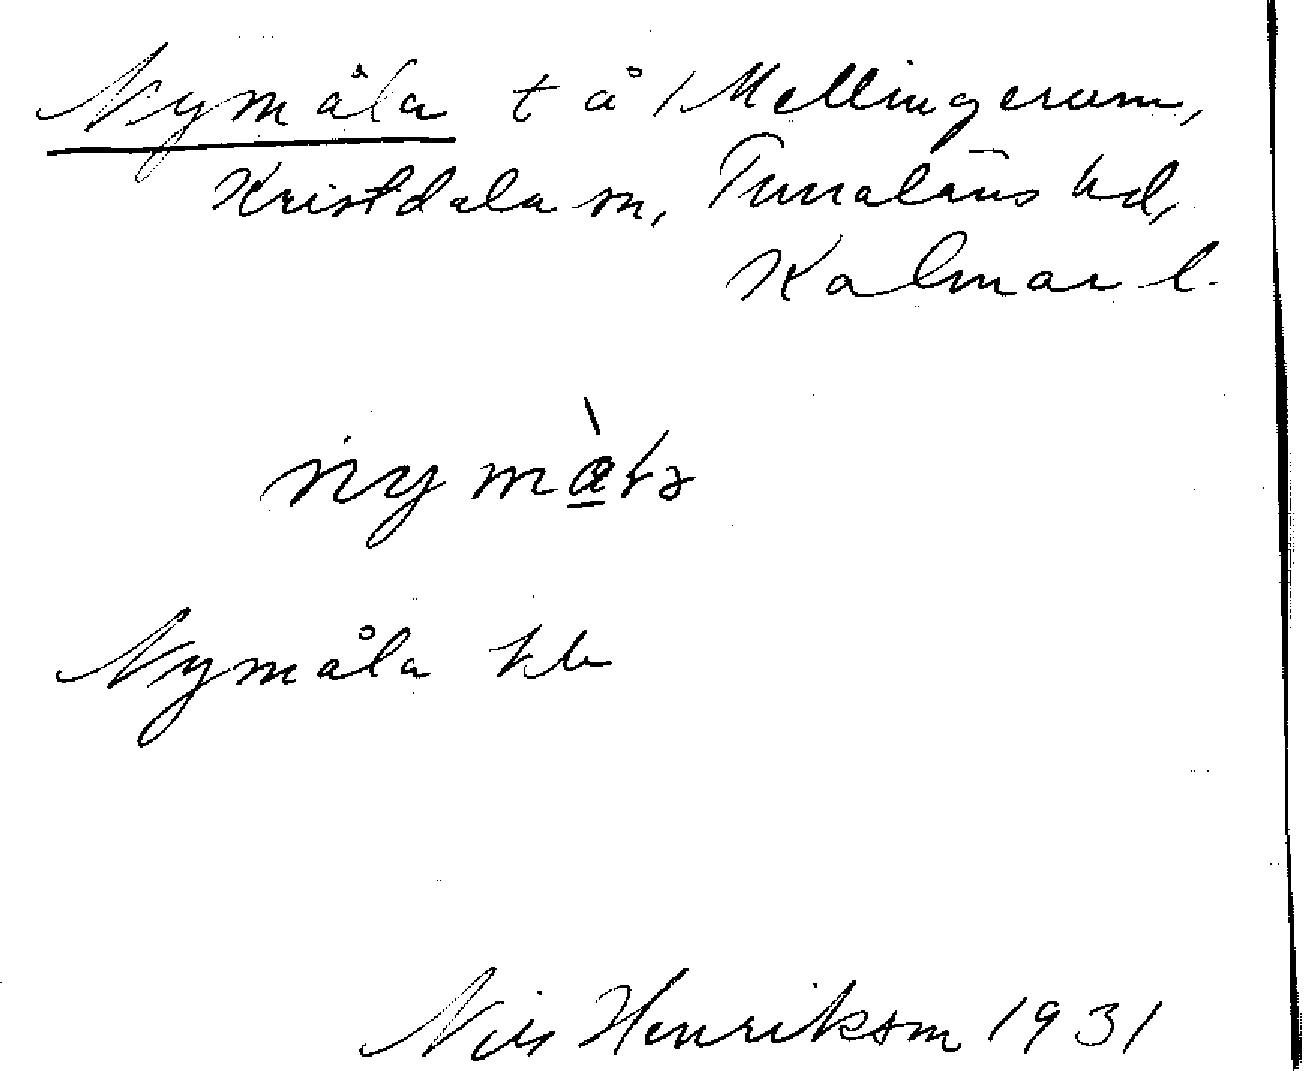 Nymåla t å 1 Mellingerum,
Kristdala sn, Tunaläns hd,
Kalmar l.
Nymåla kb
Nils Henrikson 1931